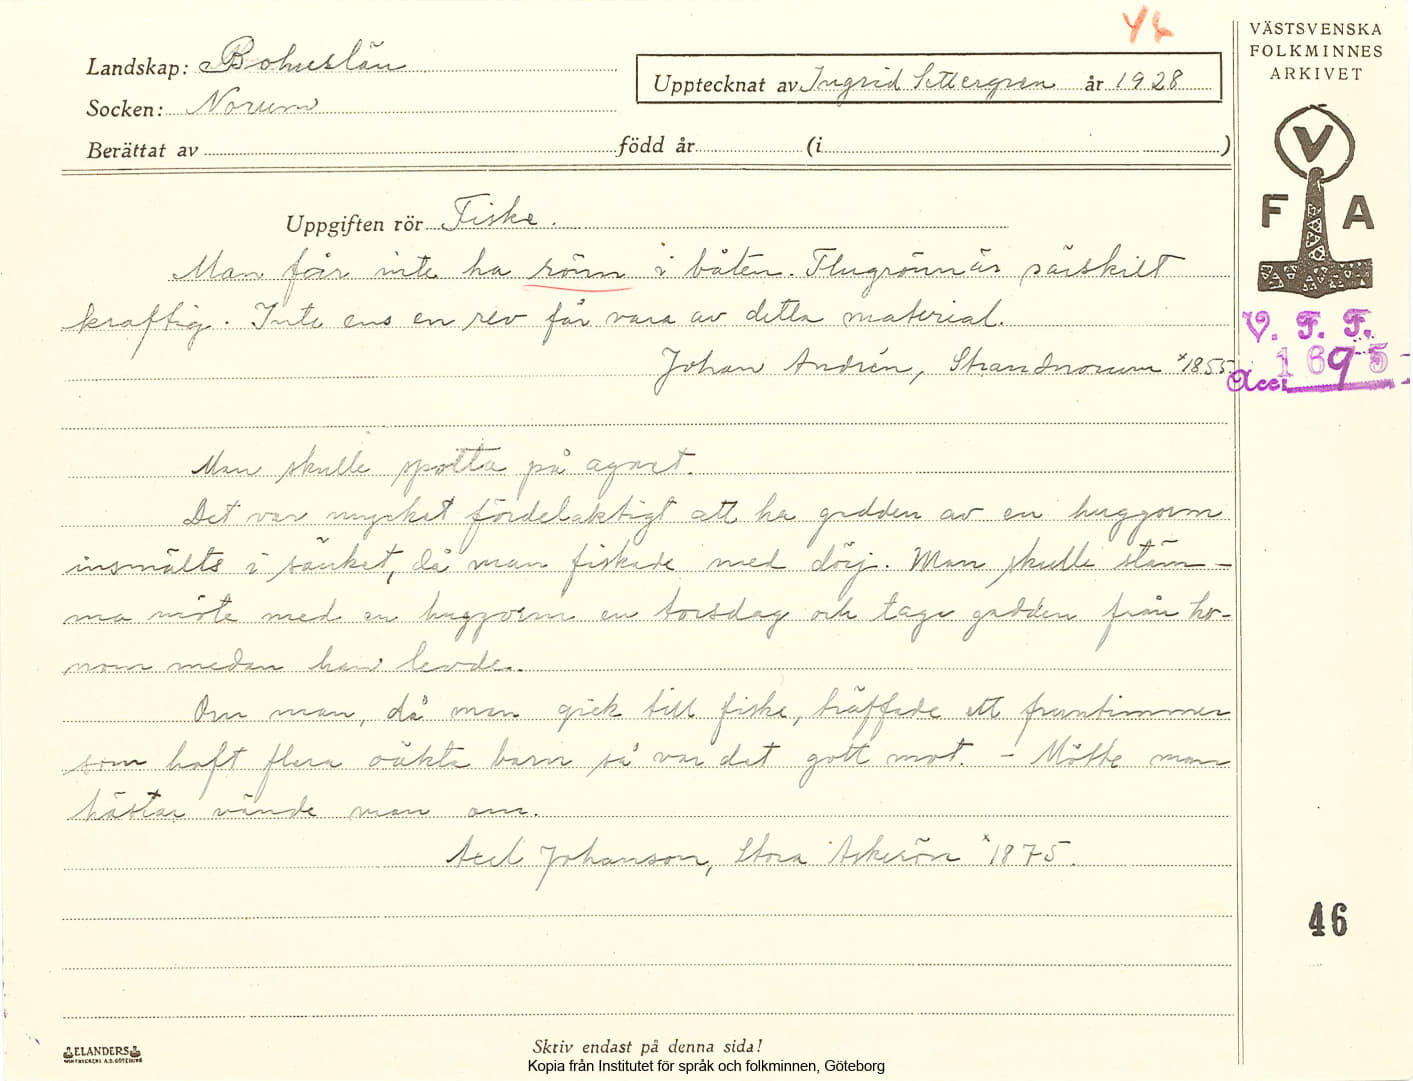 46
VÄSTSVENSKA
FOLKMINNES
ARKIVET
Landskap: Bohuslän
Upptecknat av Ingrid Settergren år 1928
Socken: Norum
Berättat av född år (i )
V
F A
Uppgiften rör Fiske.
Man får inte ha rönn i båten. Flugrönn är särskilt
kraftig. Inte ens en rev får vara av detta material.
Johan Andrén, Strandnorum *1855.
V. F. F.
Acc: 1695
Man skulle spotta på agnet.
Det var mycket fördelaktigt att ha gadden av en huggorm
insmälts i sänket, då man fiskade med dörj. Man skulle stäm-
ma möte med en huggorm en torsdag och taga gadden från ho-
nom medan han levde.
Om man, då man gick till fiske, träffade ett fruntimmer
som haft flera oäkta barn så var det gott mot. – Mötte man
hästar vände man om.
Axel Johanson, Stora Askerön *1875.
46
ELANDERS
Skriv endast på denna sida!
Kopia från Institutet för språk och folkminnen, Göteborg